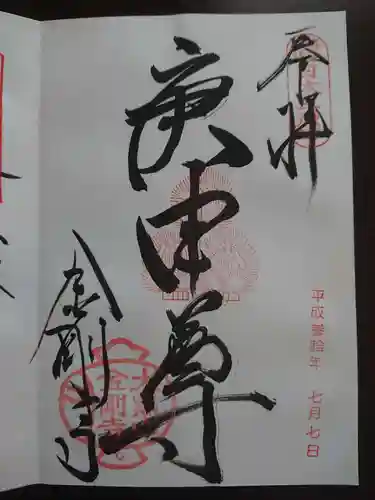 奉拝
平成叄拾年 七月七日
庚申尊
金剛寺